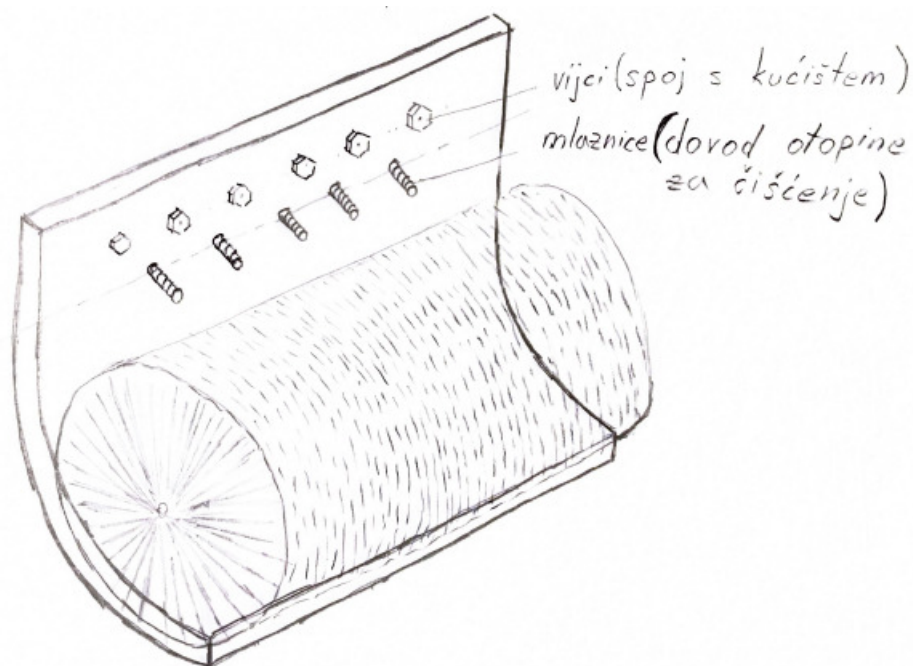 vijci (spoj s kućištem)
mlaznice (dovod otopine
za čišćenje)